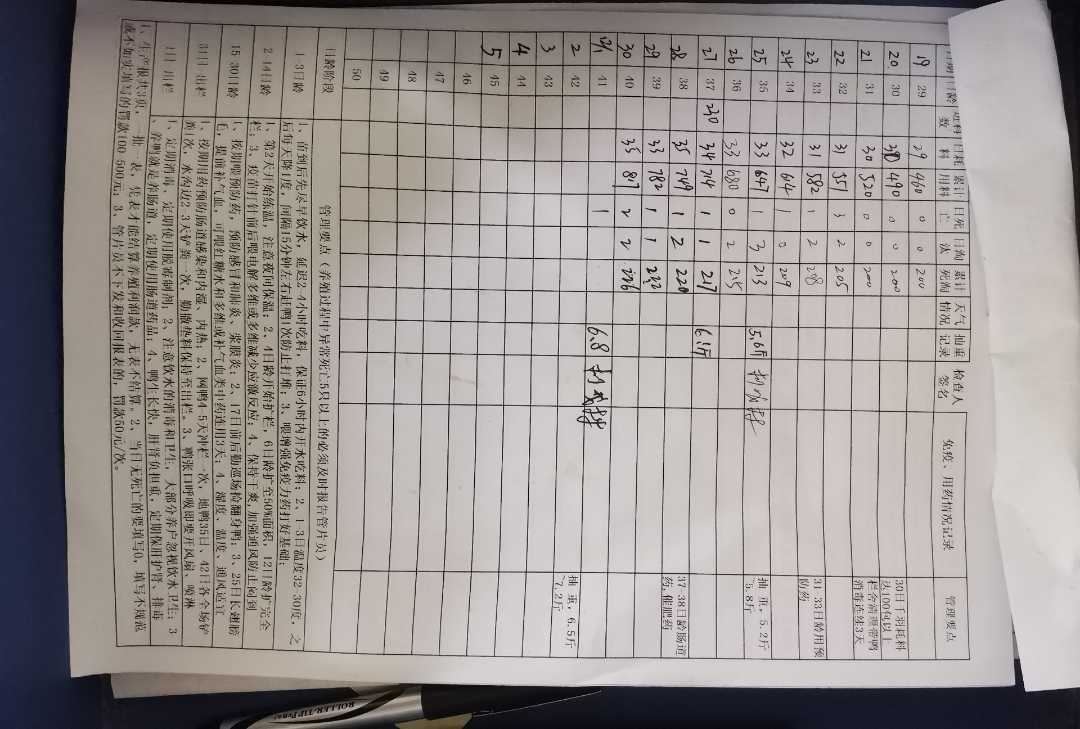 日期 日龄 进料数 日耗料 累计用料 日死亡 日淘汰 累计死淘 天气情况 抽重记录 检查人签名 免疫、用药情况记录 管理要点
19 29 29 460 0 0 200
20 30 30 490 0 0 200 30日千羽耗料达100包以上
21 31 30 520 0 0 200 栏舍清理带鸭消毒连续3天
22 32 31 551 3 2 205
23 33 31 582 1 2 208 31-33日龄用预防药
24 34 32 614 1 0 209
25 35 33 647 1 3 213 5.6斤 抽重，5.2斤-5.8斤
26 36 33 680 0 2 215
27 37 230 34 714 1 1 217 6.1斤
28 38 35 749 1 2 220 37-38日龄肠道药，催肥药
29 39 33 782 1 1 222
30 40 35 817 2 2 226
12/1 41 1 6.8
2 42 抽重，6.5斤-7.2斤
3 43
4 44
5 45
46
47
48
49
50
日龄阶段 管理要点（养殖过程中异常死亡5只以上的必须及时报告管片员）
1-3日龄 1、苗到后先尽早饮水，延迟2-4小时吃料，保证6小时内开水吃料；2、1-3日温度32-30度，之
后每天降1度，间隔15分钟左右赶鸭1次防止打堆；3、喂增强免疫力药打好基础；
2-14日龄 1、第2天开始练温，注意夜间保温；2、4日龄开始扩栏，6日龄扩至50%面积，12日龄扩完全
栏；3、疫苗打针前后喂电解多维或多维减少应激反应；4、保持干爽，加强通风防止闷到
15-30日龄 1、按期喂预防药，预防感冒和肺炎、浆膜炎；2、17日前后勤巡场捡翻身鸭；3、25日长翅膀
毛，提前补气血，可喂红糖水和多维或补气血类中药连用3天；4、湿度、温度、通风适宜
31日-出栏 1、按期用药预防肠道感染和内湿、内热；2、网鸭4-5天冲栏一次，地鸭35日、42日各全场铲
粪1次，水沟边2-3天铲粪一次，勤撒垫料保持至出栏。3、鸭张口呼吸即要开风扇、喷淋
1日-出栏 1、定期消毒，定期使用脱霉制剂；2、注意饮水的消毒和卫生，大部分养户忽视饮水卫生；3
、养鸭就是养肠道，定期使用肠道药品；4、鸭生长快，肝肾负担重，定期保肝护肾、排毒
1、生产报共3页，一批一表，凭表才能结算养殖利润款，无表不结算。2、当日无死亡的要填写0，填写不规范
或不如实填写的罚款100-500元；3、管片员不下发和收回报表的，罚款50元/次。
ROLLER-TIP Pen